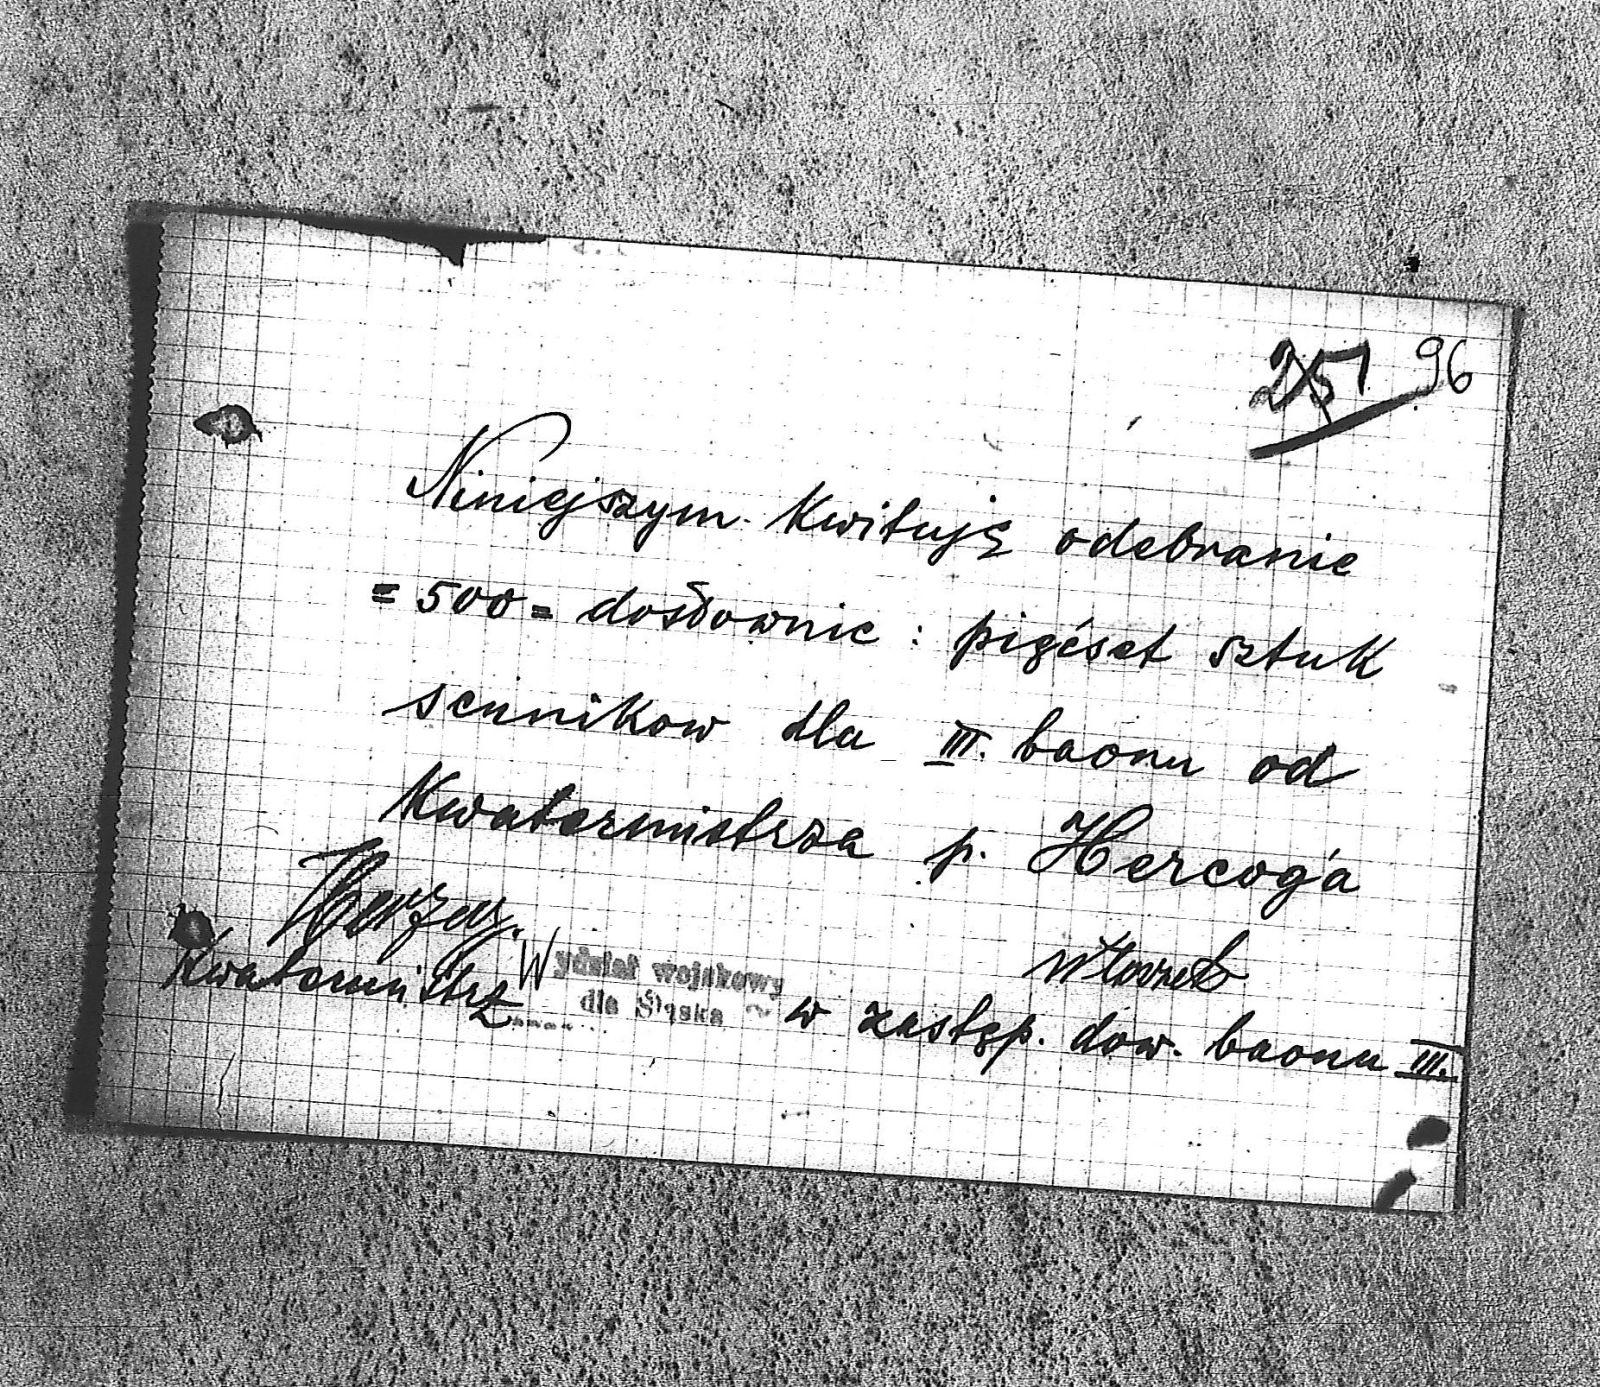 251 96
Niniejszym kwituję odebranie
= 500 = dosłownie : pięćset sztuk
sennikow dla III. baonu od
Kwatermistrza p. Hercog'a
Kwatermistrz
Wydział wojskowy
dla Śląska
w zastęp. dow. baonu III.